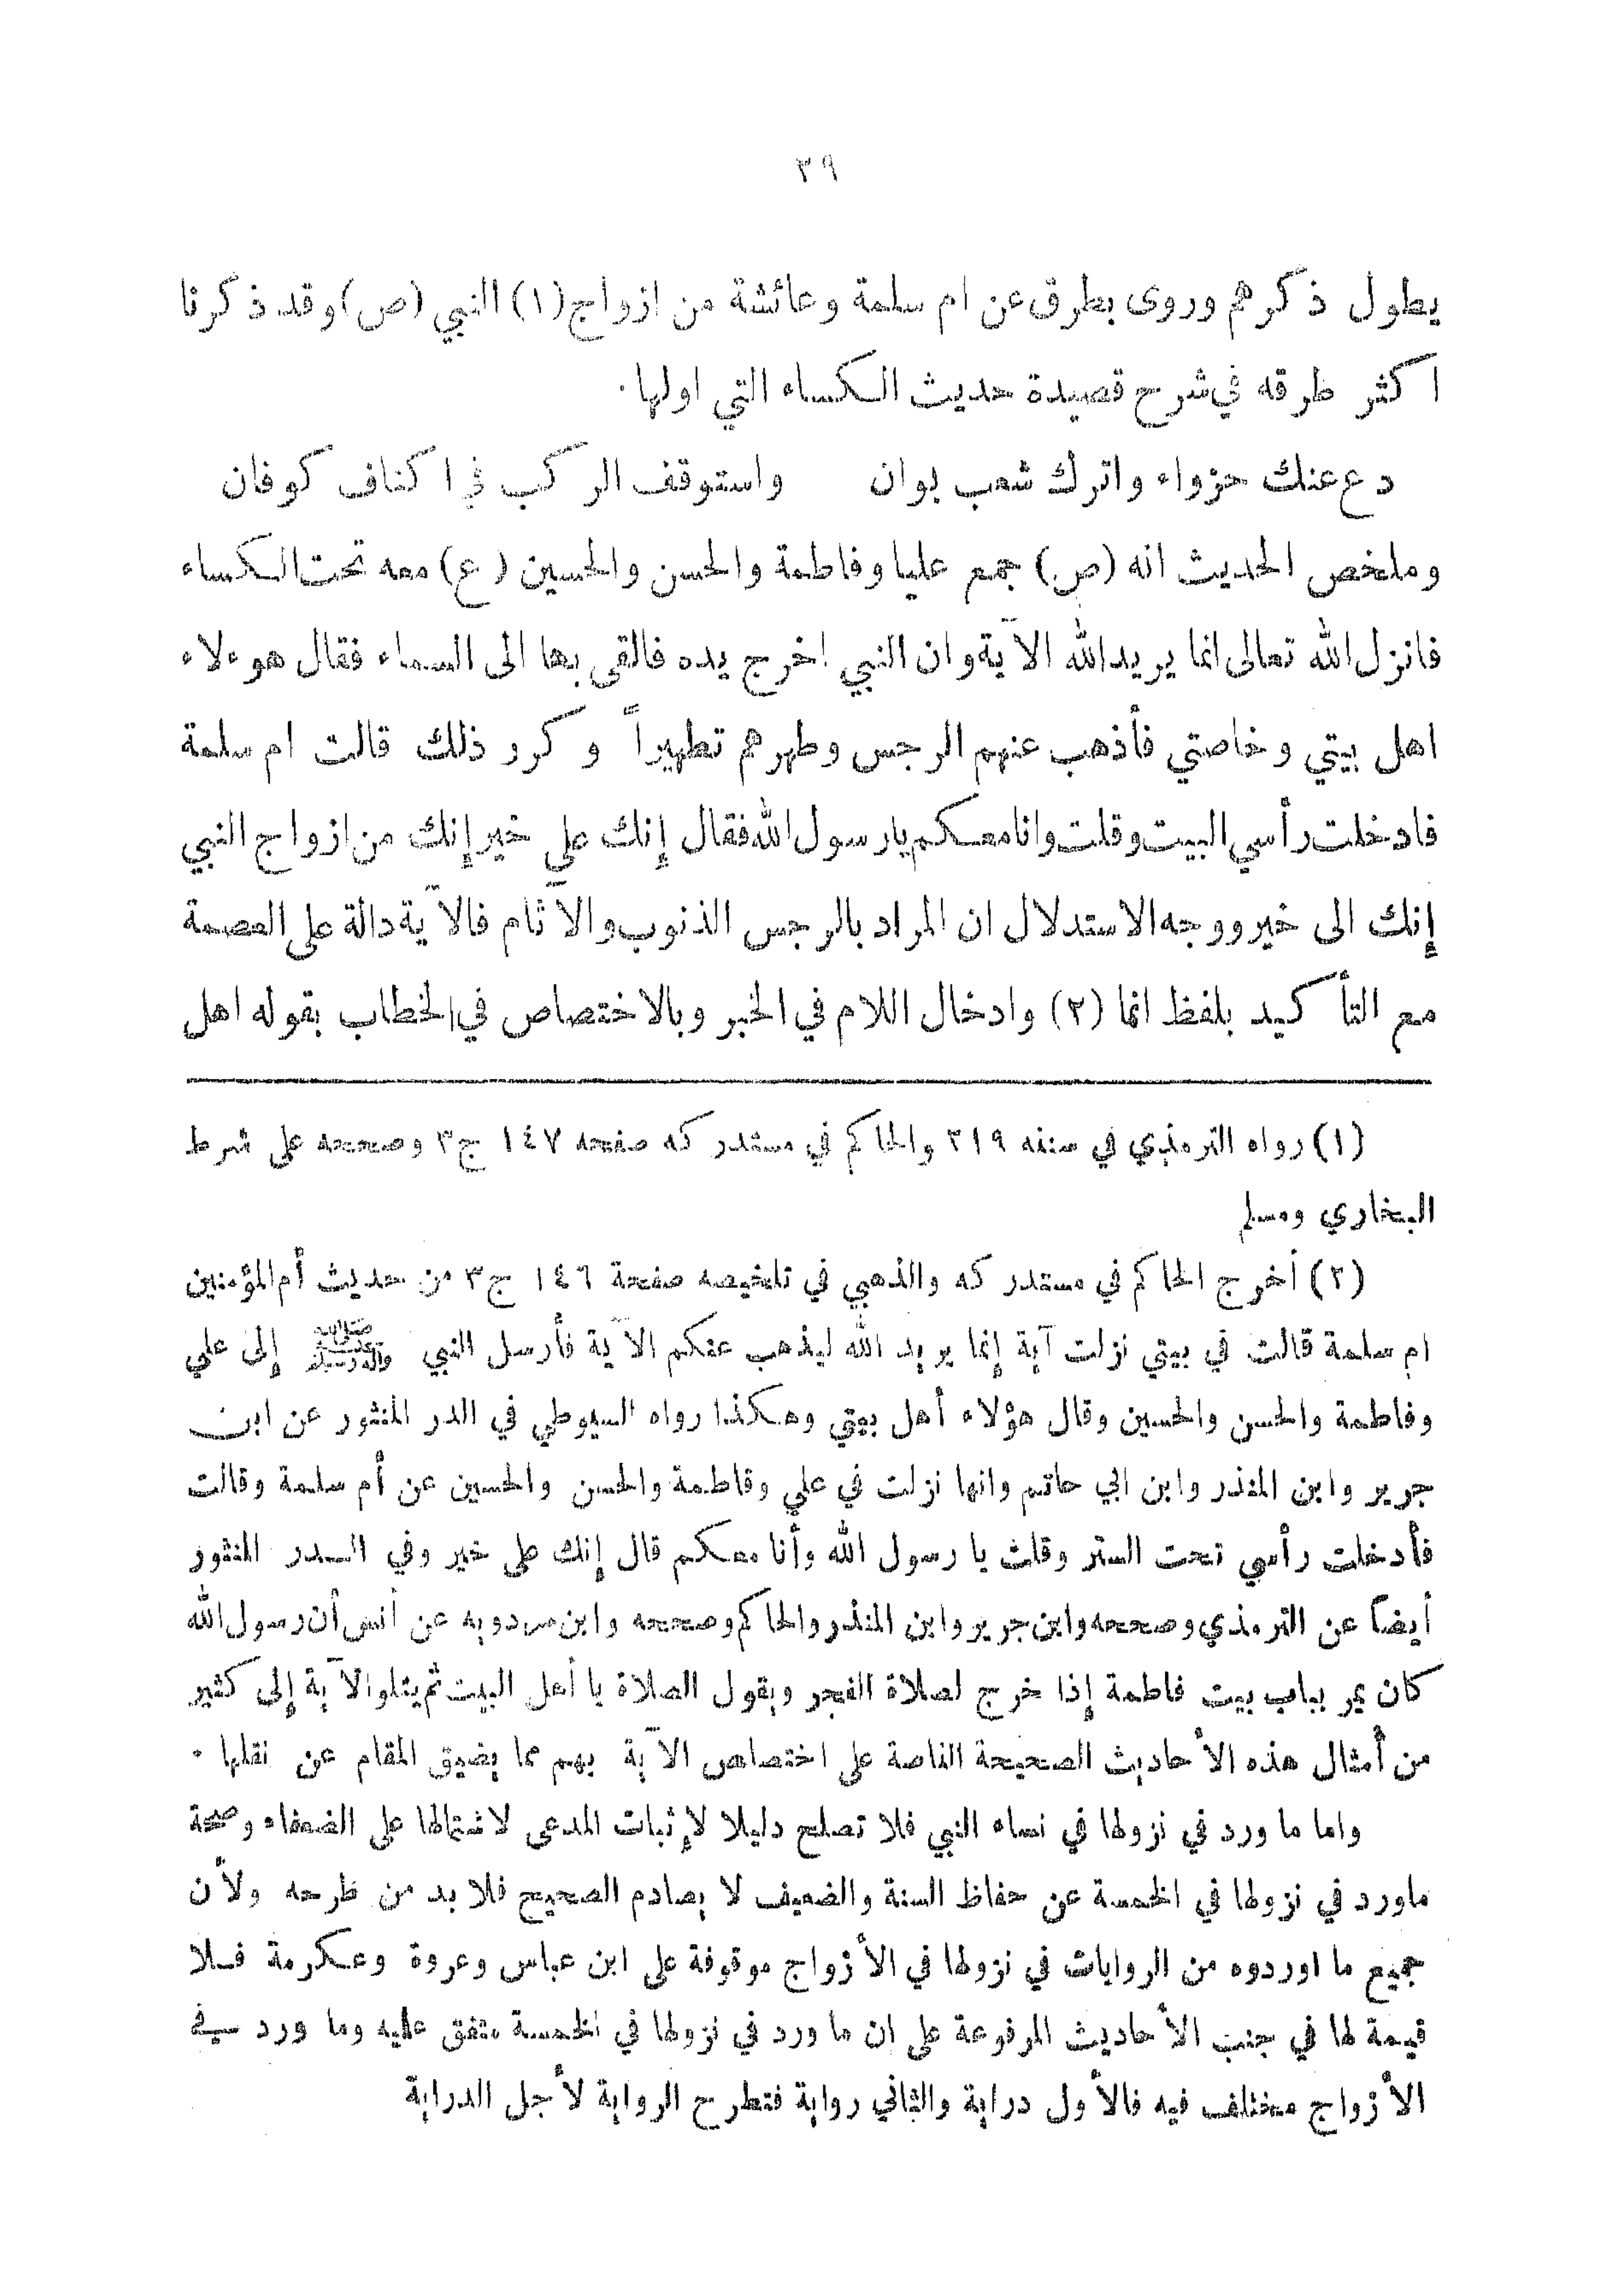 ٣٩
يطول ذكرهم وروى بطرق عن ام سلمة وعائشة من ازواج (١) النبي (ص) وقد ذكرنا
اكثر طرقه في شرح قصيدة حديث الكساء التي اولها .
دع عنك حزواء واترك شعب بوان واستوقف الركب في اكناف كوفان
وملخص الحديث انه (ص) جمع عليا وفاطمة والحسن والحسين (ع) معه تحت الكساء
فانزل الله تعالى انما يريد الله الآية وان النبي اخرج يده فالقى بها الى السماء فقال هوءلاء
اهل بيتي وخاصتي فأذهب عنهم الرجس وطهرهم تطهيراً وكرر ذلك قالت ام سلمة
فادخلت رأسي البيت وقلت وانا معكم يا رسول الله فقال إنك على خير إنك من ازواج النبي
إنك الى خير ووجه الاستدلال ان المراد بالرجس الذنوب والآثام فالآية دالة على العصمة
مع التأكيد بلفظ انما (٢) وادخال اللام في الخبر وبالاختصاص في الخطاب بقوله اهل
(١) رواه الترمذي في سننه ٣١٩ والحاكم في مستدركه صفحه ١٤٧ ج٣ وصححه على شرط
البخاري ومسلم
(٢) أخرج الحاكم في مستدركه والذهبي في تلخيصه صفحة ١٤٦ ج٣ من حديث أم المؤمنين
ام سلمة قالت في بيتي نزلت آية إنما يريد الله ليذهب عنكم الآية فأرسل النبي صلى الله عليه وآله وسلم إلى علي
وفاطمة والحسن والحسين وقال هؤلاء أهل بيتي وهكذا رواه السيوطي في الدر المنثور عن ابن
جرير وابن المنذر وابن ابي حاتم وانها نزلت في علي وفاطمة والحسن والحسين عن أم سلمة وقالت
فأدخلت رأسي تحت الستر وقلت يا رسول الله وأنا معكم قال إنك على خير وفي الدر المنثور
أيضاً عن الترمذي وصححه وابن جرير وابن المنذر والحاكم وصححه وابن مردويه عن أنس أن رسول الله
كان يمر بباب بيت فاطمة إذا خرج لصلاة الفجر ويقول الصلاة يا أهل البيت ثم يتلو الآية إلى كثير
من أمثال هذه الأحاديث الصحيحة الناصة على اختصاص الآية بهم مما يضيق المقام عن نقلها .
واما ما ورد في نزولها في نساء النبي فلا تصلح دليلا لإثبات المدعى لاشتمالها على الضعفاء وصحة
ماورد في نزولها في الخمسة عن حفاظ السنة والضعيف لا يصادم الصحيح فلا بد من طرحه ولأن
جميع ما اوردوه من الروايات في نزولها في الأزواج موقوفة على ابن عباس وعروة وعكرمة فلا
قيمة لها في جنب الأحاديث المرفوعة على ان ما ورد في نزولها في الخمسة متفق عليه وما ورد في
الأزواج مختلف فيه فالأول دراية والثاني رواية فتطرح الرواية لأجل الدراية